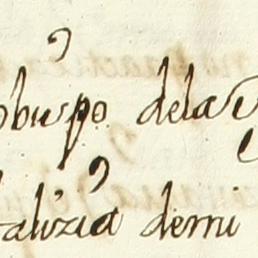 obispo dela
alizia demi